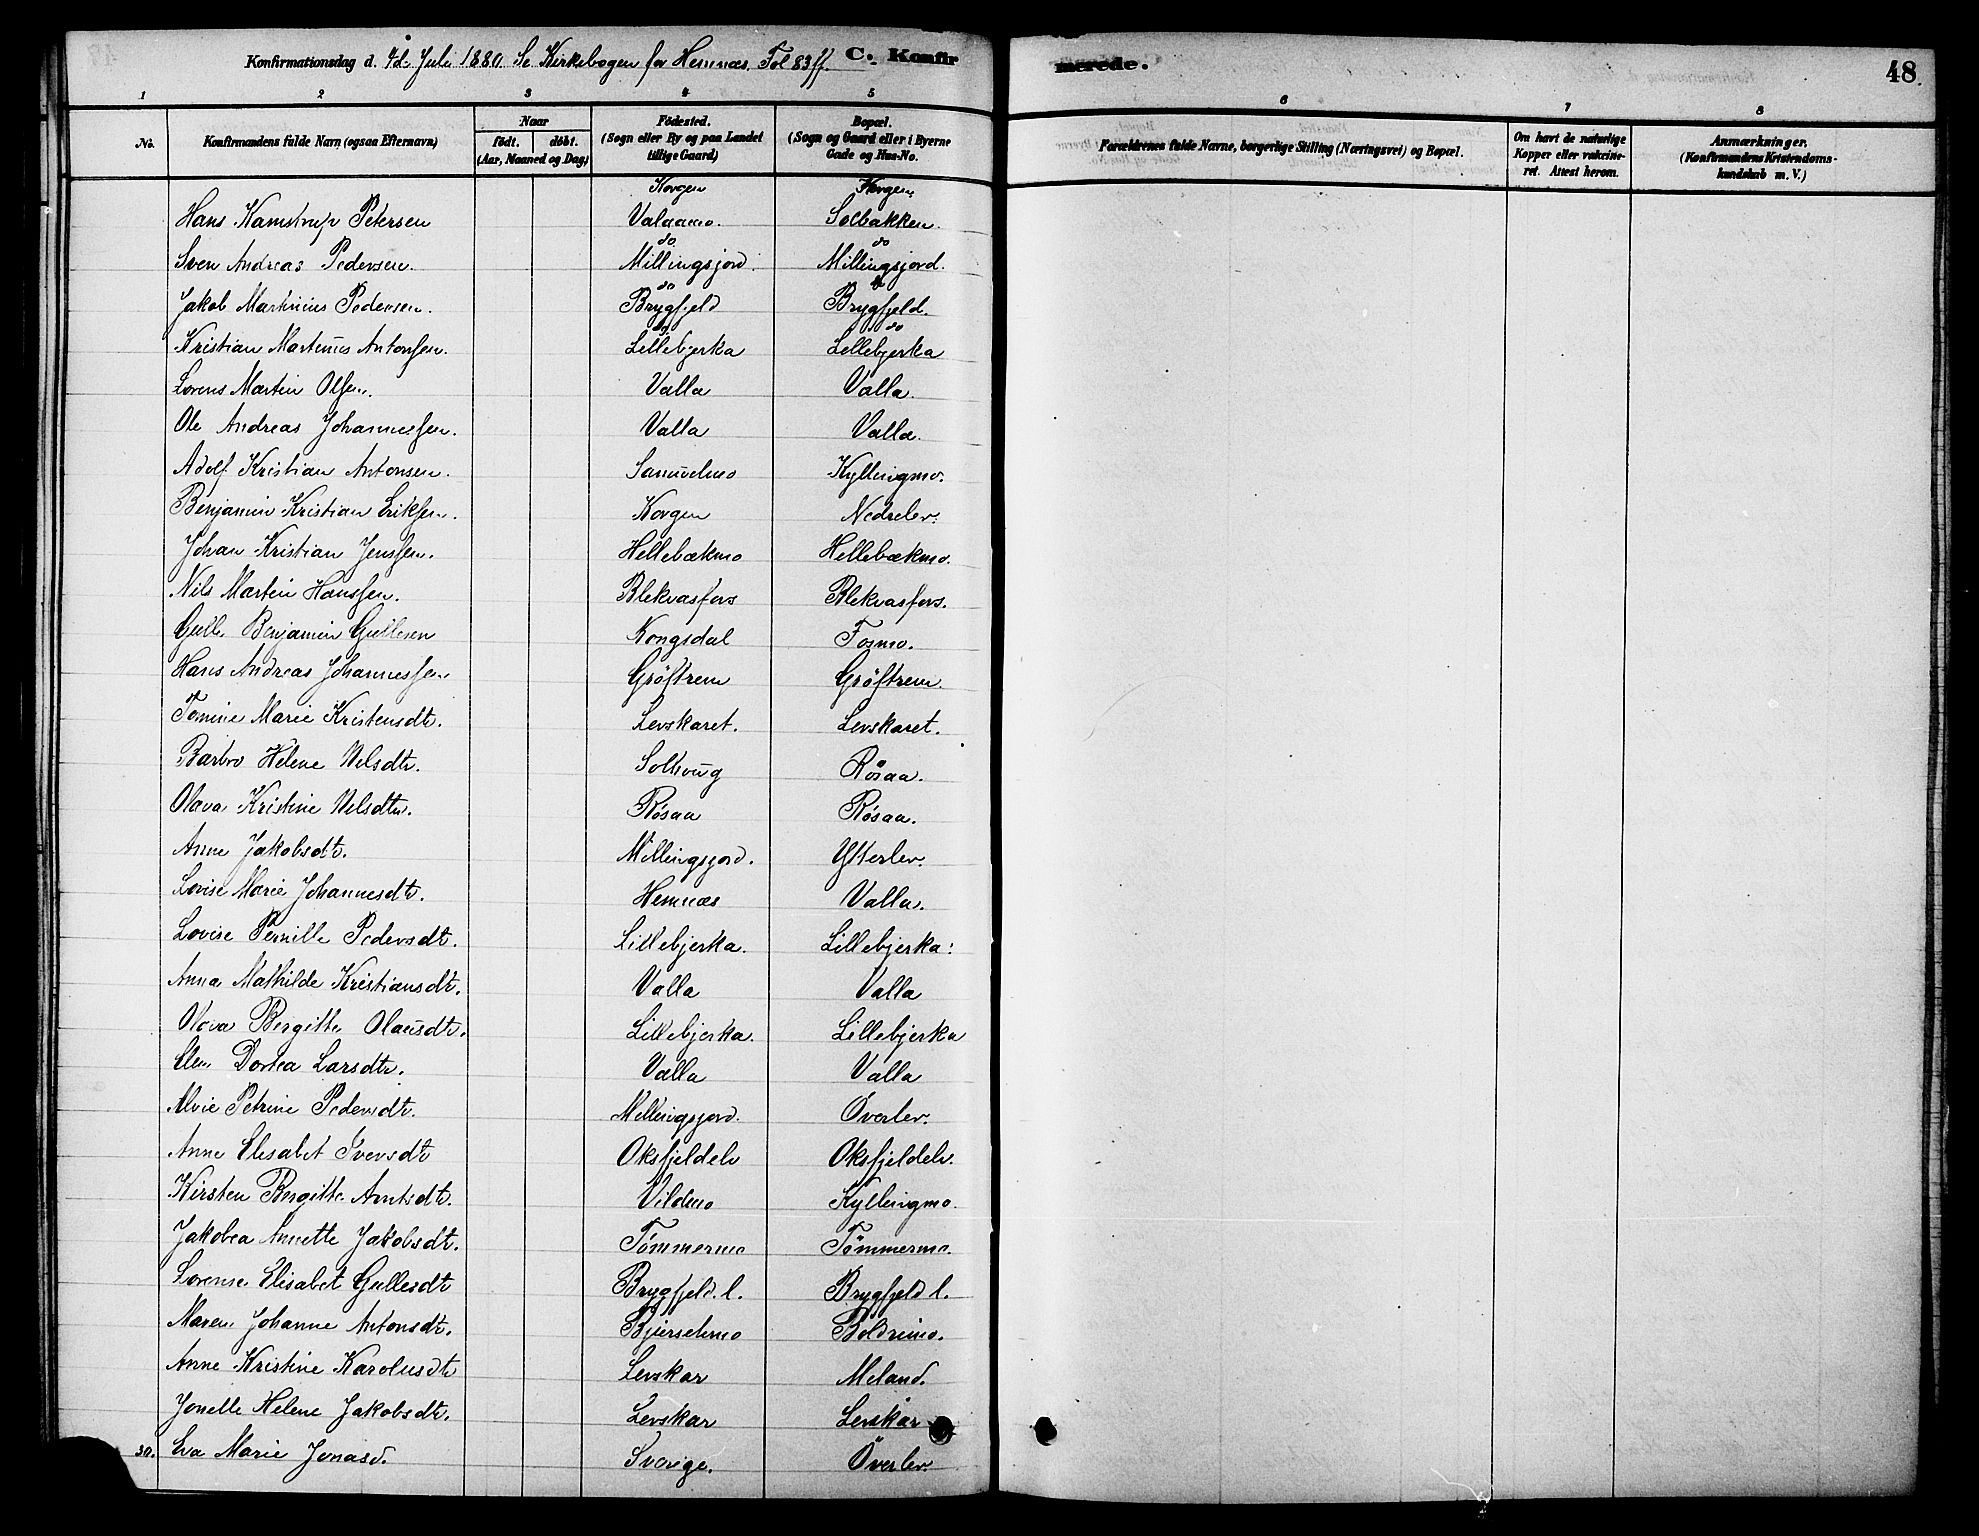 Konfirmationsdag d. 4de Juli 1880. Se Kirkebogen for Hemnæs. Fol 83 ff. C. Konfir merede. 48.
1 2 3 4 5 6 7 8
No. Konfirmandens fulde Navn (ogsaa Efternavn) Naar født. døbt. (Aar, Maaned og Dag) Fødested. (Sogn eller By og paa Landet tillige Gaard) Bopæl. (Sogn og Gaard eller i Byerne Gade og Hus-No. Forældrenes fulde Navne, borgerlige Stilling (Næringsvei) og Bopæl. Om havt de naturlige Kopper eller vakcineret. Attest herom. Anmærkninger. (Konfirmandens Kristendomskundskab m. V.)
Korgen Korgen
Hans Kamstrup Petersen Valaamo. Solbakken.
do do
Sven Andreas Pedersen. Millingsjord. Millingsjord.
do do
Jakob Martinius Pedersen. Brygfjeld Brygfjeld.
do do
Kristian Martinus Antonsen. Lillebjerka Lillebjerka
Lorens Martin Olsen. Valla Valla.
Ole Andreas Johannessen. Valla Valla.
Adolf Kristian Antonsen. Samuelmo Kyllingmo.
Benjamin Kristian Eriksen. Korgen Nedrelev.
Johan Kristian Jenssen. Hellebækmo Hellebækmo.
Nils Martin Hanssen. Blekvasfors Blekvasfors.
Gulle Benjamin Gullesen Kongsdal Fosmo.
Hans Andreas Johannessen Grøftrem Grøftrem.
Tomine Marie Kristensdtr. Levskaret. Levskaret.
Barbro Helene Nelsdtr. Solhoug Røsaa.
Olava Kristine Nelsdtr. Røsaa Røsaa.
Anne Jakobsdtr. Millingsjord. Ytterlev.
Lovise Marie Johannesdtr. Hemnæs Valla.
Lovise Pernille Pedersdt. Lillebjerka. Lillebjerka.
Anna Mathilde Kristiansdtr. Valla Valla
Olava Bergitte Olausdtr. Lillebjerka. Lillebjerka
Elen Dortea Larsdtr. Valla Valla
Alvie Petrine Pedersdtr. Millingsjord. Øverlev.
Anne Elisabet Iversdtr Oksfjeldelv Oksfjeldelv.
Kirsten Bergitte Arntsdtr. Vildmo Kyllingmo.
Jakobea Annette Jakobsdtr. Tømmermo Tømmermo.
Lorense Elisabet Gullesdtr Brygfjeld. l. Brygfjeld l.
Maren Johanne Antonsdtr. Bjerselmo Boldremo.
Anne Kristine Karolusdtr Levskar Meland.
Jonelle Helene Jakobsdtr. Levskar Levskar
30. Eva Marie Jonasd. Sverige. Øverlev.